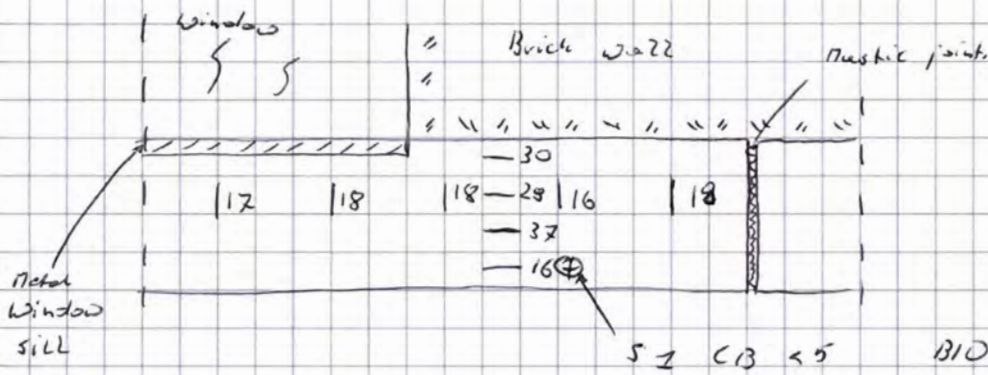 Window
Brick wall
Mastic joint
30
17 18 18 29 16 18
37
16
Metal
Window
Sill
S1 CB <5
B10